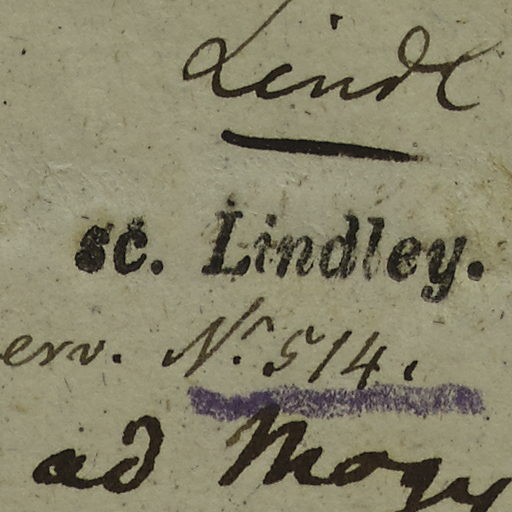 Lindl
sc. Lindley.
erv. Nr. 514.
ad Mogy